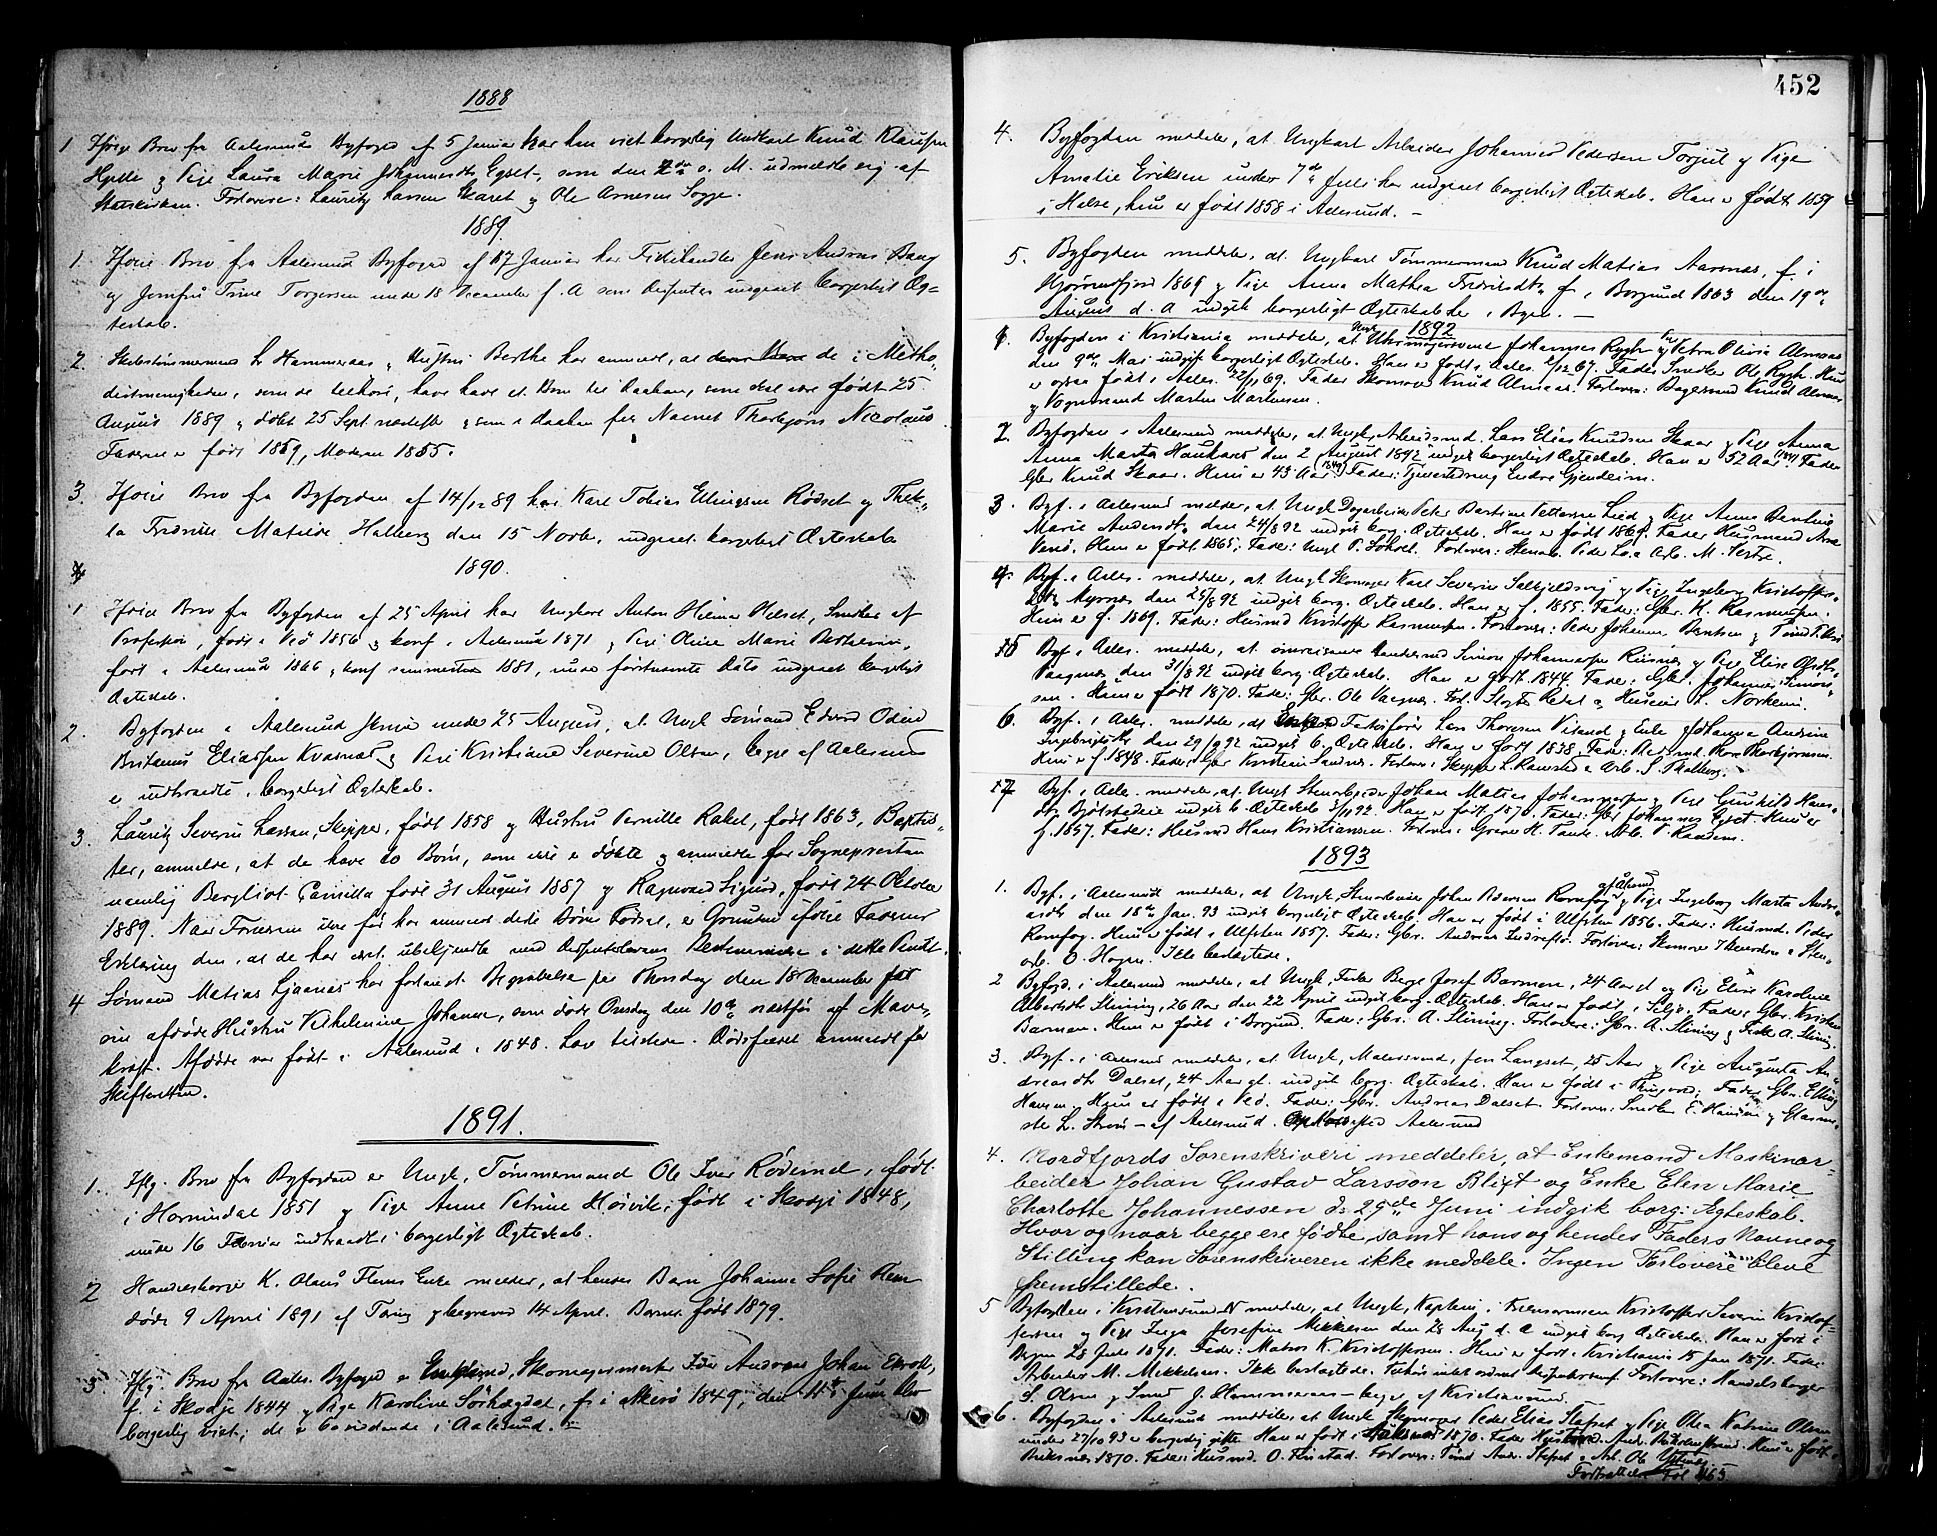 1888
1 Ifølge Brev fra Aalesunds Byfoged af 5 Januar har han viet borgerlig Ungkarl Knud Klausen
Hjelle og Pige Laura Marie Johannesdtr Egset, som den 2den s. M. udmeldte sig af
Statskirken. Forlovere: Lauritz Larsen Skaret og Ole Arnesen Sogge.
1889
1. Ifølge Brev fra Aalesund Byfoged af 17 Januar har Fiskehandler Jens Andreas Bang
og Jomfru Trine Torgersen under 18 December f. A som Dissenter indgaaet borgerligt Æg-
teskab.
2. Skibstømmermand L. Hammeraas og Hustru Berthe har anmeldt, at de i Metho-
distmenigheden, som de tilhøre, have havt et Barn til Daaben, som skal være født 25
August 1889 og døbt 25 Sept næstefter og som i Daaben fik Navnet Thorbjørn Nicolaus
Faderen er født 1859, Moderen 1855.
3. Ifølge Brev fra Byfogden af 14/12 89 har Karl Tobias Ellingsen Rødset og Thek-
la Fredrikke Matilde Halberg den 15 Novbr. indgaaet borgerligt Ægteskab
1890.
1 Ifølge Brev fra Byfogden af 25 April har Ungkarl Anton Hilmar Helset, Snedker af
Profession, født i Veø 1856 og konf. i Aalesund 1871 og Pige Oline Marie Berthelsen,
født i Aalesund 1866 og konf sammesteds 1881, under førstnævnte Dato indgaaet borgerligt
Ægteskab.
2. Byfogden i Aalesund skriver under 25 August, at Ungk. Sømand Edvard Odin
Britanus Eliassen Kvasnes og Pige Kristiane Severine Olsen, begge af Aalesund
er indtraadte i borgerligt Ægteskab.
3. Lauritz Severin Larsen, Skipper, født 1858 og Hustru Pernille Rakel, født 1863, Baptis-
ter, anmelde, at de have to Børn, som ikke er døbte og anmeldte for Sognepresten
nemlig Bergliot Camilla født 31 August 1887 og Ragnvald Sigurd, født 24 Oktober
1889. Naar Forældrene ikke før har anmeldt dette Børns Fødsel, er Grunden ifølge Faderens
Erklæring den, at de har været ubekjendte med Dissenterlovens Bestemmelse i dette Punkt.
4 Sømand Matias Ljaanes har forlangt Begravelse paa Thorsdag den 18 December for
sin afdøde Hustru Vilhelmine Johanne, som døde Onsdag den 10de næstfør af Mave-
kræft. Afdøde var født i Aalesund i 1848. Lav. Lutherske. Dødsfaldet anmeldt for
Skifteretten.
1891.
1. Iflg. Brev fra Byfogden er Ungk. Tømmermand Ole Iver Rødsend, født
i Hornindal 1851 og Pige Anne Petrine Høivik, født i Skodje 1848,
under 16 Februar indtraadt i borgerligt Ægteskab.
2 Handelsborger K. Olaus Flems Enke melder, at hendes Barn Johanne Sofie Flem
døde 9 April 1891 af Tæring og begraves 14 April. Barnet født 1879.
3. Iflg. Brev fra Aales. Byfoged er Enkemand, Skomagermester Iver Andreas Johan
f. i Skodje 1844 og Pige Karoline Søihagdal, f. i Akerø 1849, den 11te Juni blev
borgerlig viet; de er boendende i Aalesund. -
452
4. Byfogden meddeler, at Ungkarl Arbeider Johannes Pedersen Torjul og Pige
Amalie Eriksen under 7de Juli har indgaaet borgerligt Ægteskab. Han er født 1859
i Halse, hun er født 1858 i Aalesund. -
5. Byfogden meddeler, at Ungkarl Tømmermand Knud Matias Aarsnes, f. i
Hjørundfjord 1869 og Pige Anna Mathea Fredriksdtr f. i Borgund 1863 den 19de
August d. A indgik borgerligt Ægteskab her i Byen. -
1892
1. Byfogden i Kristiania meddeler, at Uhrmagersvend Johannes Rygh og Petra Olivia Almaas
den 9de Mai indgik borgerligt Ægteskab. Han er født i Aales. 2/12 67. Fader Smedm. Ole Rygh. Hun
er ogsaa født i Aales. 22/11 69. Fader Skomager Knud Almaas. Forlovere: Bagersvend Knud Almaas
og Vognmand Martin Martinsen.
2. Byfogden i Aalesund meddeler, at Ungk. Arbeidsmd. Lars Elias Knudsen Skaar og Pige Anna
Anna Marta Haukaas den 2 August 1892 indgik borgerligt Ægteskab. Han er 52 Aar Fader
Gbr Knud Skaar. Hun er 43 Aar (1849) Fader: Tjenestedreng Endre Gjendeim.
3. Byf. i Aalesund melder, at Ungk. Dagarbeider Peter Bastian Pettersen Lied og Pige Anne Bentine
Marie Andersdtr den 24/8 92 indgik borg. Ægteskab. Han er født 1869. Fader Husmand Arne
Venø. Hun er født 1865; Fader: Ungk P. Solnol. Forlover: Stenarb. Peder Lø. a Arb. M. Vestre.
4. Byf. i Aales. meddeler, at Ungk Skomager Karl Severin Salkjelsvig og Pige Ingeborg Kristoffers-
dtr. Myrnes den 25/8 92 indgik borg. Ægteskab. Han og f. 1855. Fader: Gbr. K. Rasmussen.
Hun er f. 1869. Fader: Husmd Kristoffer Rasmussen. Forlover: Peder Johannes Bentsen og
5 Byf. i Aales. meddeler, at Landsmd Simon Johannessen Riisnes og Pige Elise Olsdtr
Vaagnes den 31/8 92 indgik borg Ægteskab. Han er født 1844. Fader: Gbr. Johannes Simon-
sen. Hun er født 1870. Fader: Gbr. Ole Vaagnes. Forl. Slagter Rebel a Huseier L. Norheim.
6. Byf. i Aales. meddeler, at Enkemd Fartøifører Lars Thoresen Viland og Enke Johanna Andrine
Ingebrigtsdtr den 29/9 92 indgik b. Ægteskab. Han er født 1838. Fader: Husmd. Thorbjørnsen.
Hun er f. 1848. Fader: Gbr Kristian Sandnes. Forlover: Skipper L. Ramstad a Arb. S. Thalberg.
7 Byf. i Aales. meddeler, at Ungk Stenarbeider Johan Matias Johannessen og Pige Gunhild Hans-
dtr. Bjølstadeie indgik b. Ægteskab 3/11 92. Han er født 1870. Fader: Gbr Johannes Egset. Hun er
f. 1857. Fader: Husmd Hans Kristiansen. Forlover: Graver H. Tande. Arb. P. Raadem.
1893
1. Byf. i Aalesund meddeler, at Ungk, Stenarbeider Johan Pedersen Ramfog og Pige Ingeborg Marta Andre-
asdtr den 18de Jan. 93 indgik borgerligt Ægteskab. Han er født i Ulfsten 1856. Fader: Husmd. Peder
Ramfog. Hun er født i Ulfsten 1857. Fader: Gbr. Andreas Indrefjor. Forlover: Skomager Ibenholm a Sten-
arb. O. Hagen. Ikke beslægtede.
2 Byfogd. i Aalesund meddeler, at Ungk. Fisker Berge Josef Barmen, 24 Aar gl og Pige Elise Karoline
Albertsdtr Slining, 26 Aar den 22 April indgik borg. Ægteskab. Han er født i Selje. Fader: Gbr. Kristen
Barmen. Hun er født i Borgund. Fader: Gbr. A. Slining. Forlovere: Gbr. A. Slining og Fisker A. Slining.
3. Byf. i Aalesund meddeler, at Ungk, Malersvend, Jon Langset, 25 Aar og Pige Augusta An-
dreasdtr Dalset, 24 Aar gl. indgik borg. Ægteskab. Han er født i Tingvold; Fader Gbr. Elling
Hansen. Hun er født i Veø. Fader: Gbr. Andreas Dalset. Forlover: Snedker E. Hansen og Glasme-
ster L. Strøm - af Aalesund. Aalesund
4. Nordfjords Sorenskriveri meddeler, at Enkemand Maskinar-
beider Johan Gustav Larsson Bligt og Enke Elen Marie
Charlotte Johannessen d: 29de Juni indgik borg: Ægteskab.
Hvor og naar begge ere fødte, samt hans og hendes Faders Navne og
Stilling kan Sorenskriveren ikke meddele. Ingen Forlovere bleve
fremstillede.
5 Byfogden i Kristiansund N meddeler, at Ungk, Kaptein i Frelsarmeen Kristoffer Severin Kristof-
fersen og Pige Inga Josefine Mikkelsen den 28 Aug d. A indgik borg Ægteskab. Han er født i
Bergen 28 Juli 1871. Fader: Matros K. Kristoffersen. Hun er født i Kristiania 15 Jan 1871. Fader
Arbeider M. Mikkelsen. Ikke beslægtede. Tilhøre intet ordnet Dissentersamf. Forlovere: Handelsborger
S. Olsen og Smed J. Hammeraas - begge af Kristiansund.
6. Byfogden i Aalesund meddeler, at Ungk Skomager Peder Elias Stafset og Pige Olea Katrine Olsen
under 27/10 93 er borgerlig gifte. Han er født i Aalesund 1870. Fader Husmand Andr. Hun er født i
Buksnes 1870. Fader: Husmd. O. Finstad. Forlover: Tømd Andr. Stafset og Arb. Ole
Fortsættelse Fol 465